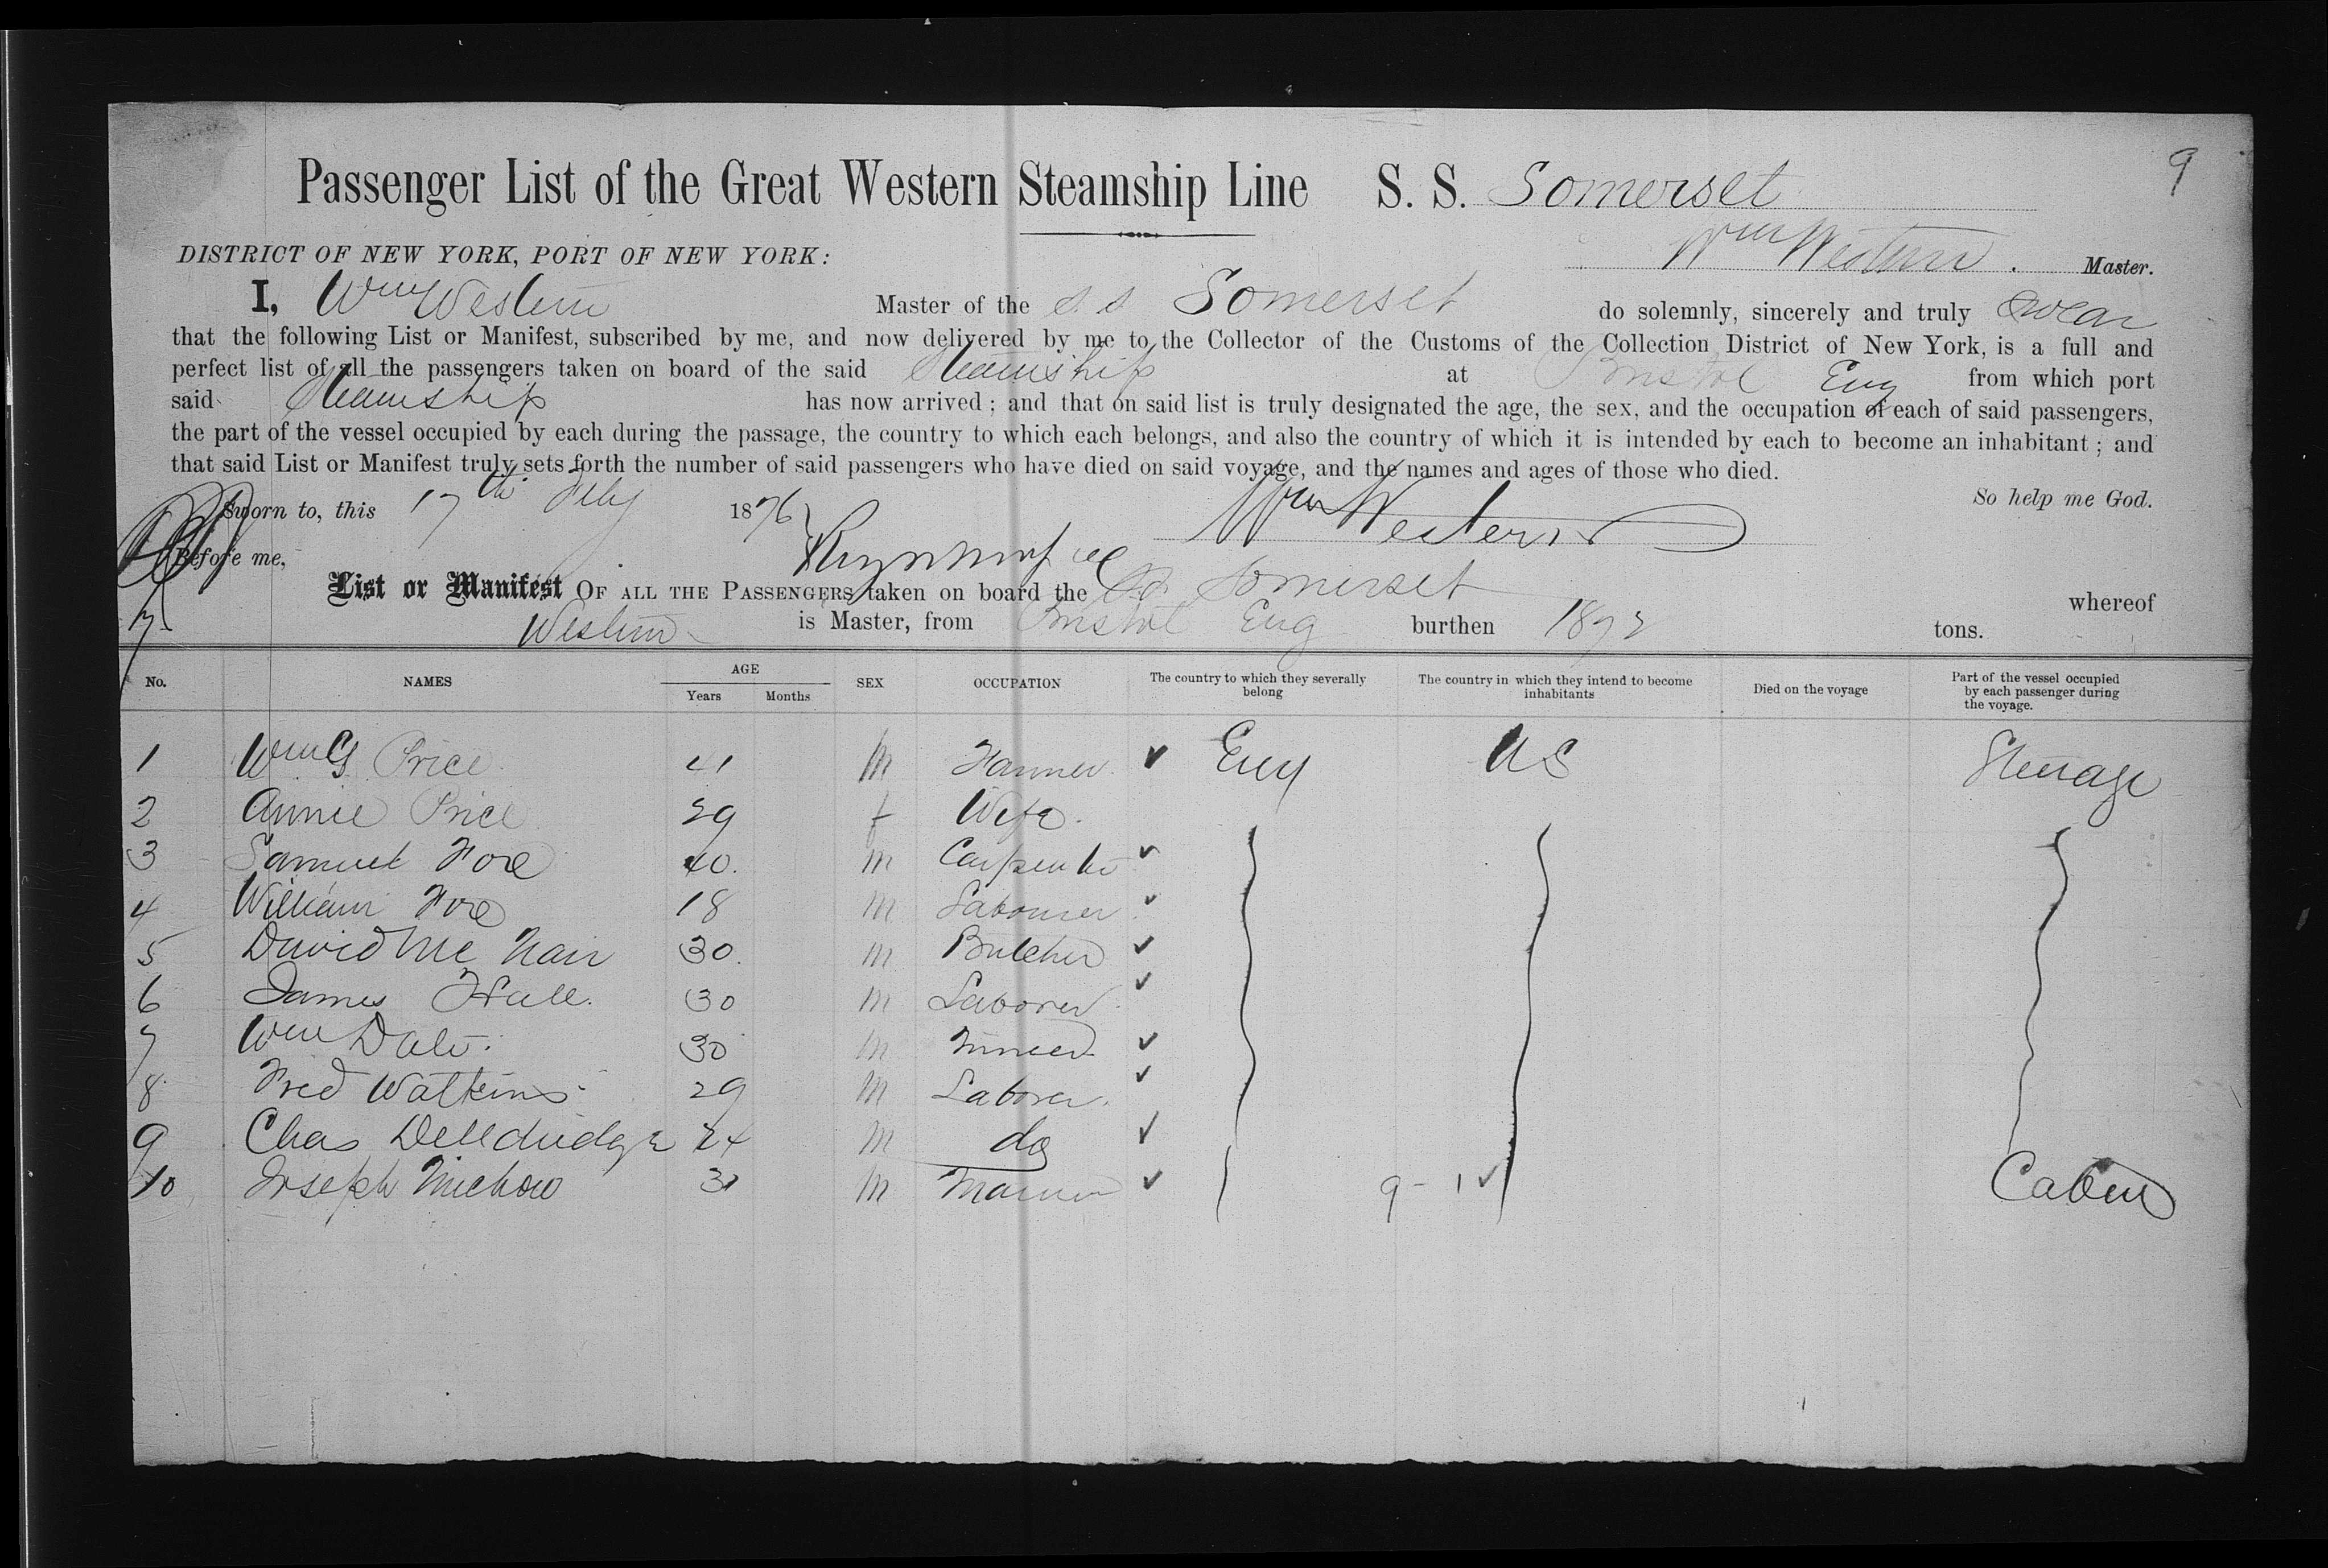 9
Passenger List of the Great Western Steamship Line S. S. Somerset
Wm Western. Master.
DISTRICT OF NEW YORK, PORT OF NEW YORK:
I, Wm Western Master of the S.S Somerset do solemnly, sincerely and truly swear
that the following List or Manifest, subscribed by me, and now delivered by me to the Collector of the Customs of the Collection District of New York, is a full and
perfect list of all the passengers taken on board of the said Steamship at Bristol Eng from which port
said Steamship has now arrived; and that on said list is truly designated the age, the sex, and the occupation of each of said passengers,
the part of the vessel occupied by each during the passage, the country to which each belongs, and also the country of which it is intended by each to become an inhabitant; and
that said List or Manifest truly sets forth the number of said passengers who have died on said voyage, and the names and ages of those who died.
So help me God.
Sworn to, this 17th Feby 1876 Wm Western
Before me,
List or Manifest OF ALL THE PASSENGERS taken on board the S.S. Somerset whereof
Western is Master, from Bristol Eng burthen 1872 tons.
No. NAMES AGE Years Months SEX OCCUPATION The country to which they severally belong The country in which they intend to become inhabitants Died on the voyage Part of the vessel occupied by each passenger during the voyage.
1 Wm G Price 41 m Farmer ✓ Eng US Steerage
2 Annie Price 29 f Wife
3 Samuel Fore 40. m Carpenter ✓
4 William Fore 18 m Labourer ✓
5 David Mc Nair 30. m Butcher ✓
6 James Hall. 30 m Laborer ✓
7 Wm Dale. 30 m Miner ✓
8 Fred Watkins 29 m Laborer. ✓
9 Chas Delldridge 24 m do ✓
10 Joseph m ✓ 9 - 1 ✓ Cabin